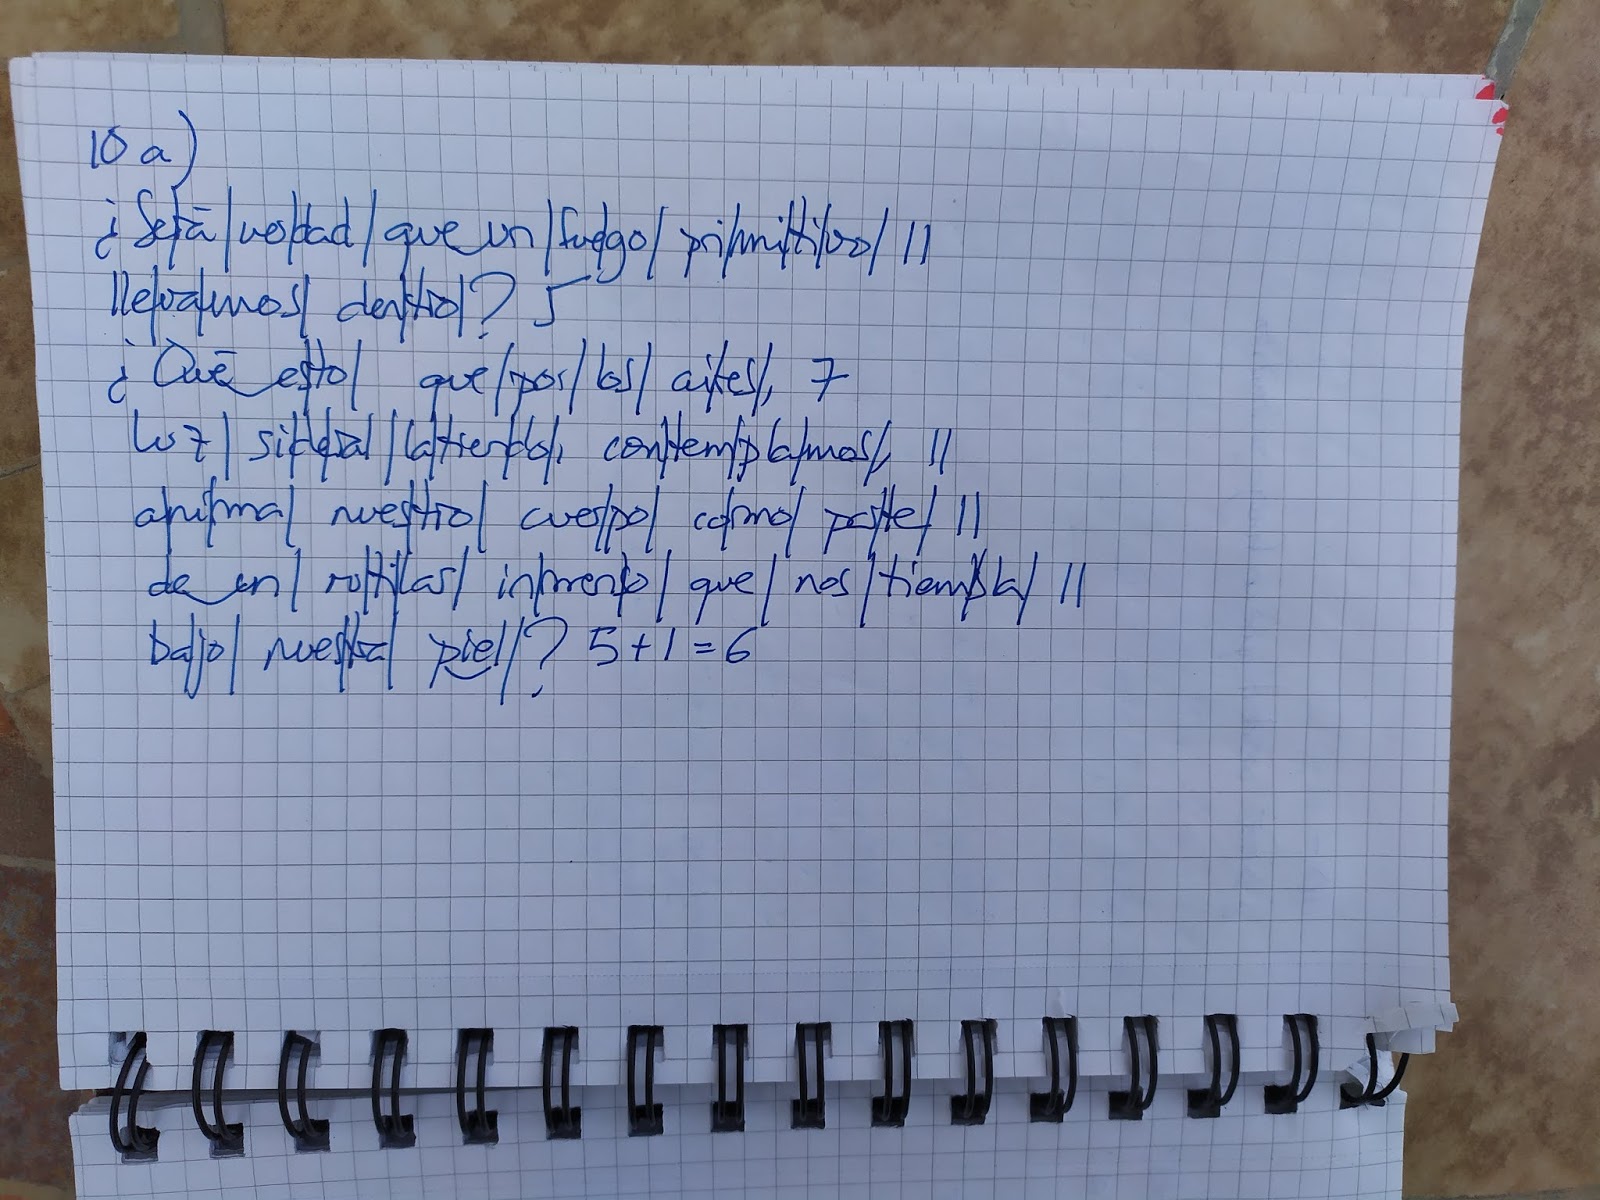 10 a)
¿Se/rā/ver/dad/ que un/fue/go/ pri/mi/ti/vo/ 11
lle/va/mos/ den/tro/? 5
¿Quē es/to/ que/por/los/ ai/res/, 7
luz/ si/de/ral/la/tien/do/, con/tem/pla/mos/, 11
a/ni/ma/ nues/tro/ cuer/po/ co/mo/ par/te/ 11
de un/ ru/ti/las/ in/men/so/ que/ nos/tiem/bla/ 11
ba/jo/ nues/tra/ piel/? 5+1=6